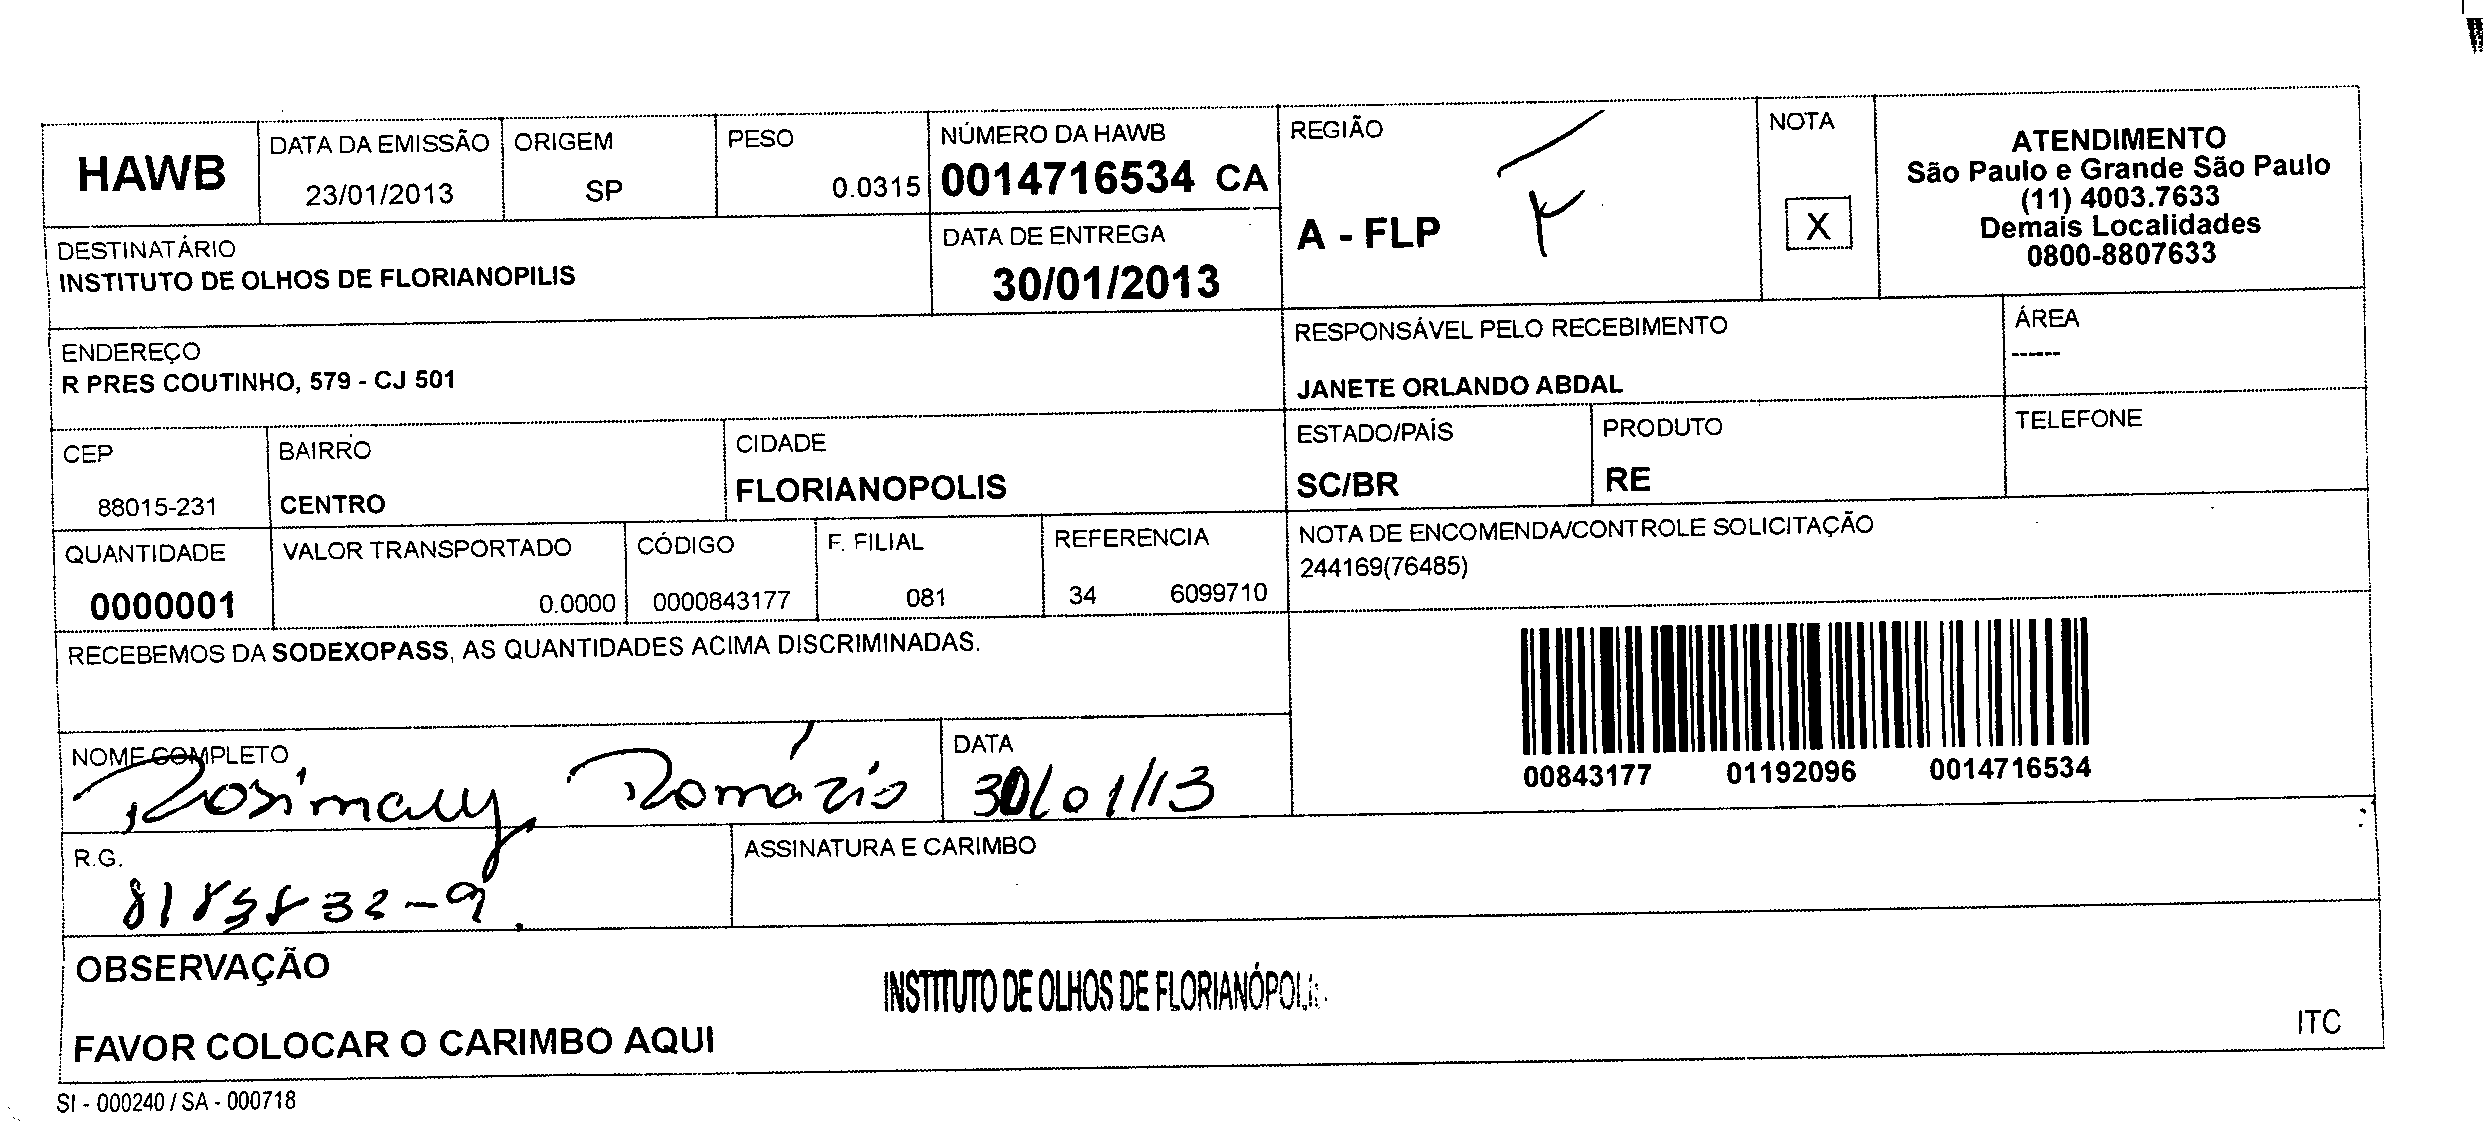 HAWB
DATA DA EMISSÃO
23/01/2013
ORIGEM
SP
PESO
0.0315
NÚMERO DA HAWB
0014716534 CA
REGIÃO
A - FLP
NOTA
X
ATENDIMENTO
São Paulo e Grande São Paulo
(11) 4003.7633
Demais Localidades
0800-8807633
DESTINATÁRIO
INSTITUTO DE OLHOS DE FLORIANOPILIS
DATA DE ENTREGA
30/01/2013
ENDEREÇO
R PRES COUTINHO, 579 - CJ 501
RESPONSÁVEL PELO RECEBIMENTO
JANETE ORLANDO ABDAL
ÁREA
------
CEP
88015-231
BAIRRO
CENTRO
CIDADE
FLORIANOPOLIS
ESTADO/PAÍS
SC/BR
PRODUTO
RE
TELEFONE
QUANTIDADE
0000001
VALOR TRANSPORTADO
0.0000
CÓDIGO
0000843177
F. FILIAL
081
REFERENCIA
34 6099710
NOTA DE ENCOMENDA/CONTROLE SOLICITAÇÃO
244169(76485)
RECEBEMOS DA SODEXOPASS, AS QUANTIDADES ACIMA DISCRIMINADAS.
00843177 01192096 0014716534
NOME COMPLETO
Rosimary Romázio
DATA
30/01/13
R.G.
ASSINATURA E CARIMBO
OBSERVAÇÃO
INSTITUTO DE OLHOS DE FLORIANÓPOLIS
FAVOR COLOCAR O CARIMBO AQUI
ITC
SI - 000240 / SA - 000718